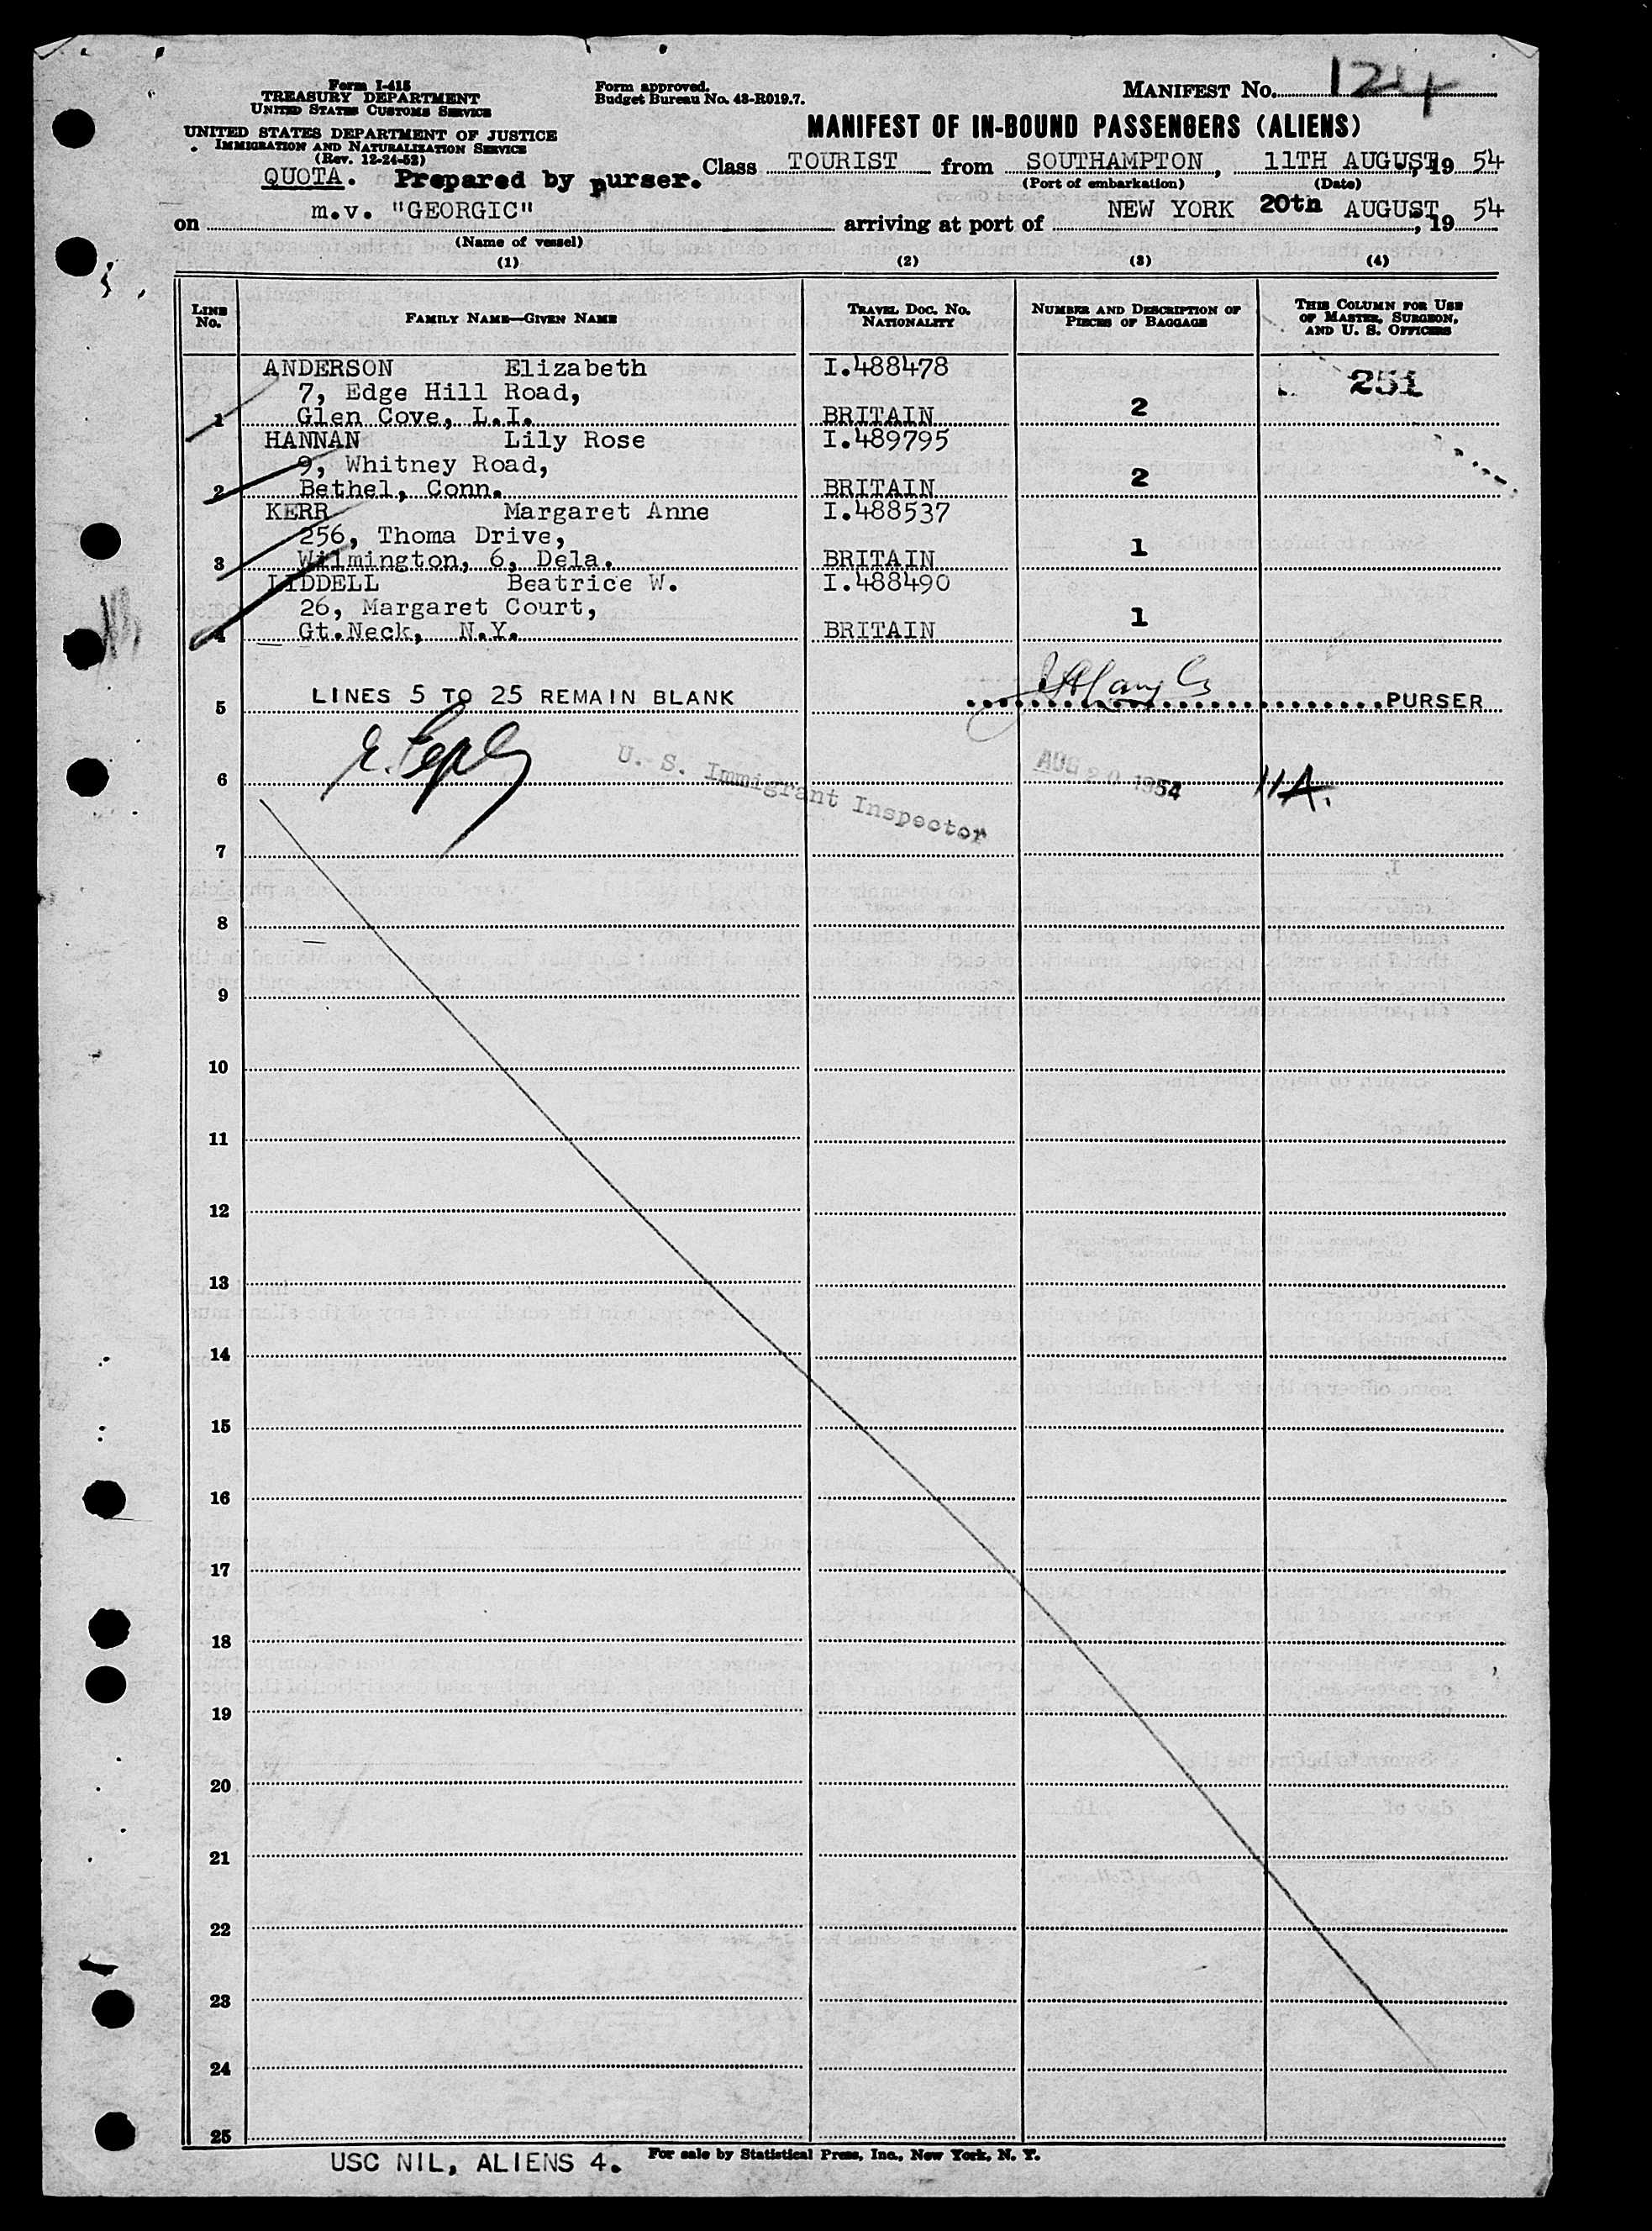 Form I-415
TREASURY DEPARTMENT
UNITED STATES CUSTOMS SERVICE
UNITED STATES DEPARTMENT OF JUSTICE
IMMIGRATION AND NATURALIZATION SERVICE
(Rev. 12-24-52)
Form approved.
Budget Bureau No. 43-R019.7.
MANIFEST No. 124
MANIFEST OF IN-BOUND PASSENGERS (ALIENS)
QUOTA. Prepared by purser. Class TOURIST from SOUTHAMPTON, 11TH AUGUST, 19 54
(Port of embarkation) (Date)
on m.v. "GEORGIC" arriving at port of NEW YORK 20th AUGUST, 19 54
(Name of vessel)
(1) (2) (3) (4)
LINE No. FAMILY NAME—GIVEN NAME TRAVEL DOC. NO. NATIONALITY NUMBER AND DESCRIPTION OF PIECES OF BAGGAGE THIS COLUMN FOR USE OF MASTER, SURGEON, AND U. S. OFFICERS
ANDERSON Elizabeth I.488478 251
7, Edge Hill Road,
1 Glen Cove, L.I. BRITAIN 2
HANNAN Lily Rose I.489795
9, Whitney Road,
2 Bethel, Conn. BRITAIN 2
KERR Margaret Anne I.488537
256, Thoma Drive,
3 Wilmington, 6, Dela. BRITAIN 1
LIDDELL Beatrice W. I.488490
26, Margaret Court,
4 Gt.Neck, N.Y. BRITAIN 1
5 LINES 5 TO 25 REMAIN BLANK PURSER
6 U. S. Immigrant Inspector AUG 20 1954
7
8
9
10
11
12
13
14
15
16
17
18
19
20
21
22
23
24
25
USC NIL, ALIENS 4. For sale by Statistical Press, Inc., New York, N. Y.